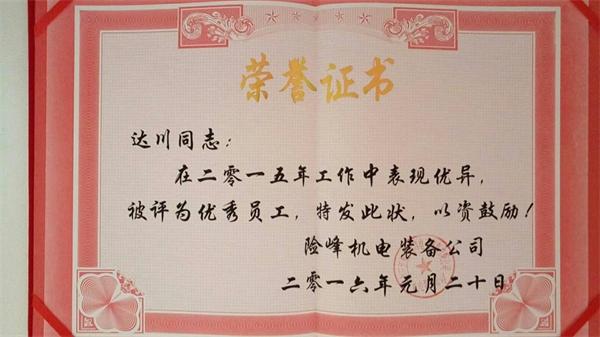 荣誉证书
达川同志：
在二零一五年工作中表现优异，
被评为优秀员工，特发此状，以资鼓励！
险峰机电装备公司
二零一六年元月二十日